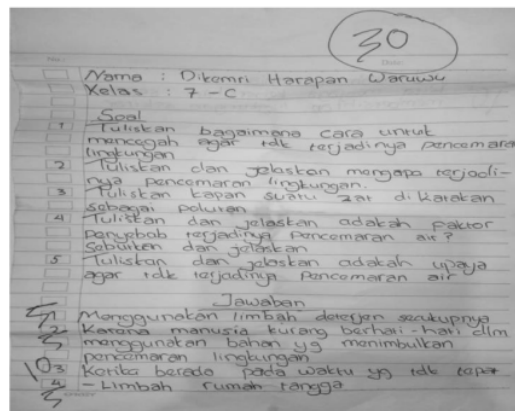 30
No :
Date :
Nama : Dikemri Harapan Waruwu
Kelas : 7-C
Soal
1 Tuliskan bagaimana cara untuk
mencegah agar tdk terjadinya pencemara
lingkungan
2 Tuliskan dan jelaskan mengapa terjadi-
nya pencemaran lingkungan.
3 Tuliskan kapan suatu zat di katakan
sebagai polutan
4 Tuliskan dan jelaskan adakah faktor
penyebab terjadinya Pencemaran air?
Sebutkan dan jelaskan
5 Tuliskan dan jelaskan adakah upaya
agar tdk terjadinya Pencemaran air
Jawaban
Menggunakan limbah deterjen secukupnya
Karena manusia kurang berhati-hati dlm
menggunakan bahan yg menimbulkan
pencemaran lingkungan
10 3 Ketika berada pada waktu yg tdk tepat
4 - Limbah rumah tangga